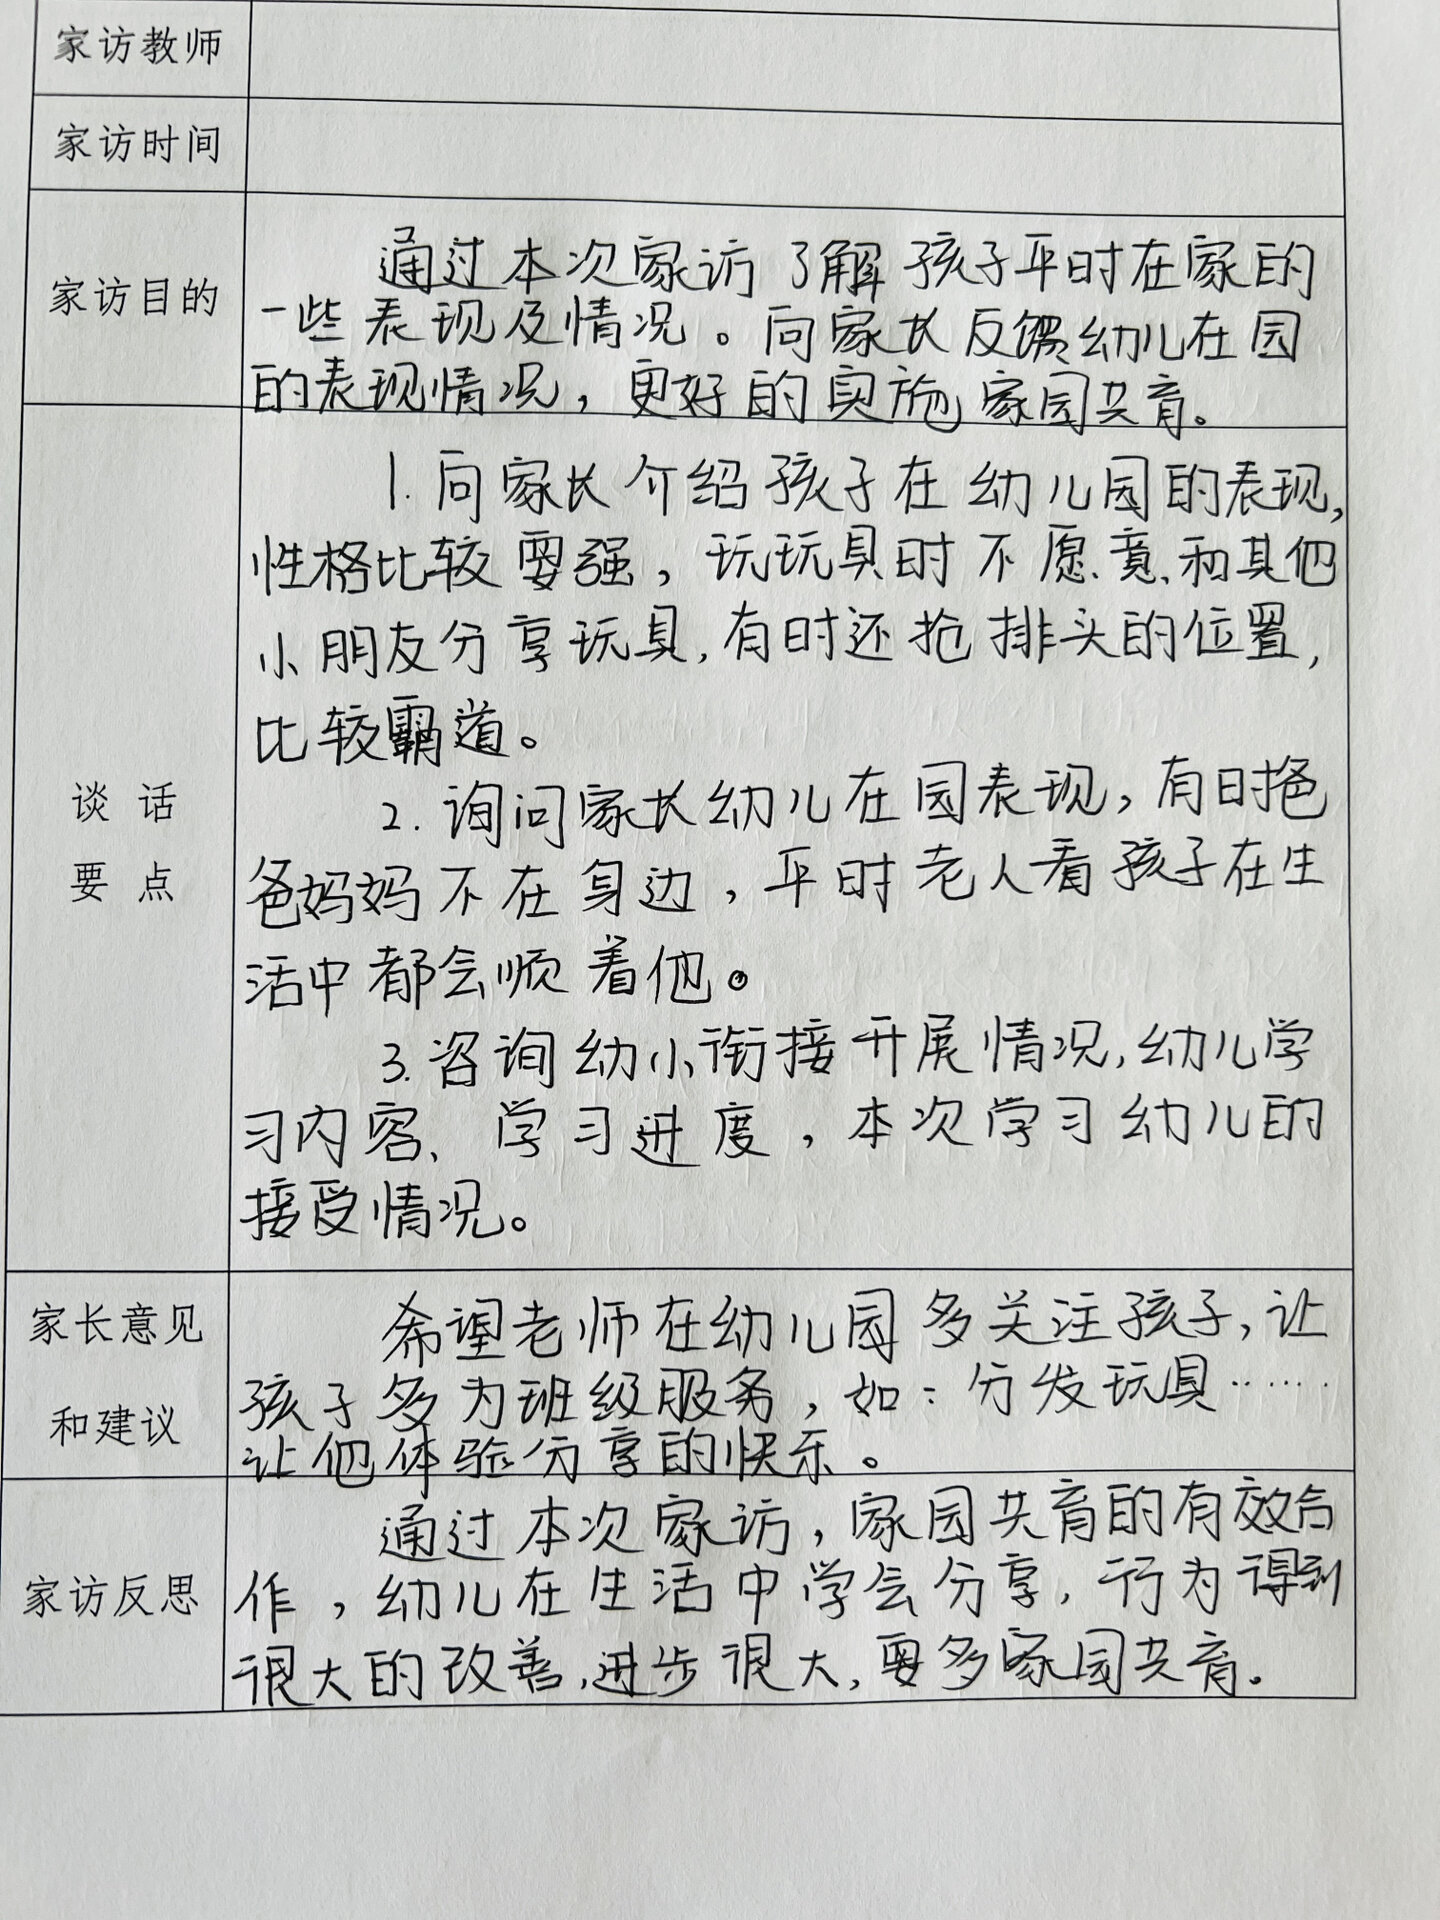 家访教师
家访时间
家访目的
通过本次家访了解孩子平时在家的
一些表现及情况。向家长反馈幼儿在园
的表现情况，更好的实施家园共育。
谈 话
要 点
1.向家长介绍孩子在幼儿园的表现,
性格比较要强，玩玩具时不愿意和其他
小朋友分享玩具,有时还抢排头的位置,
比较霸道。
2.询问家长幼儿在园表现，有时爸
爸妈妈不在身边，平时老人看孩子在生
活中都会顺着他。
3.咨询幼小衔接开展情况,幼儿学
习内容、学习进度，本次学习幼儿的
接受情况。
家长意见
和建议
希望老师在幼儿园多关注孩子,让
孩子多为班级服务，如：分发玩具……
让他体验分享的快乐。
家访反思
通过本次家访，家园共育的有效合
作，幼儿在生活中学会分享,行为得到
很大的改善,进步很大,要多家园共育。